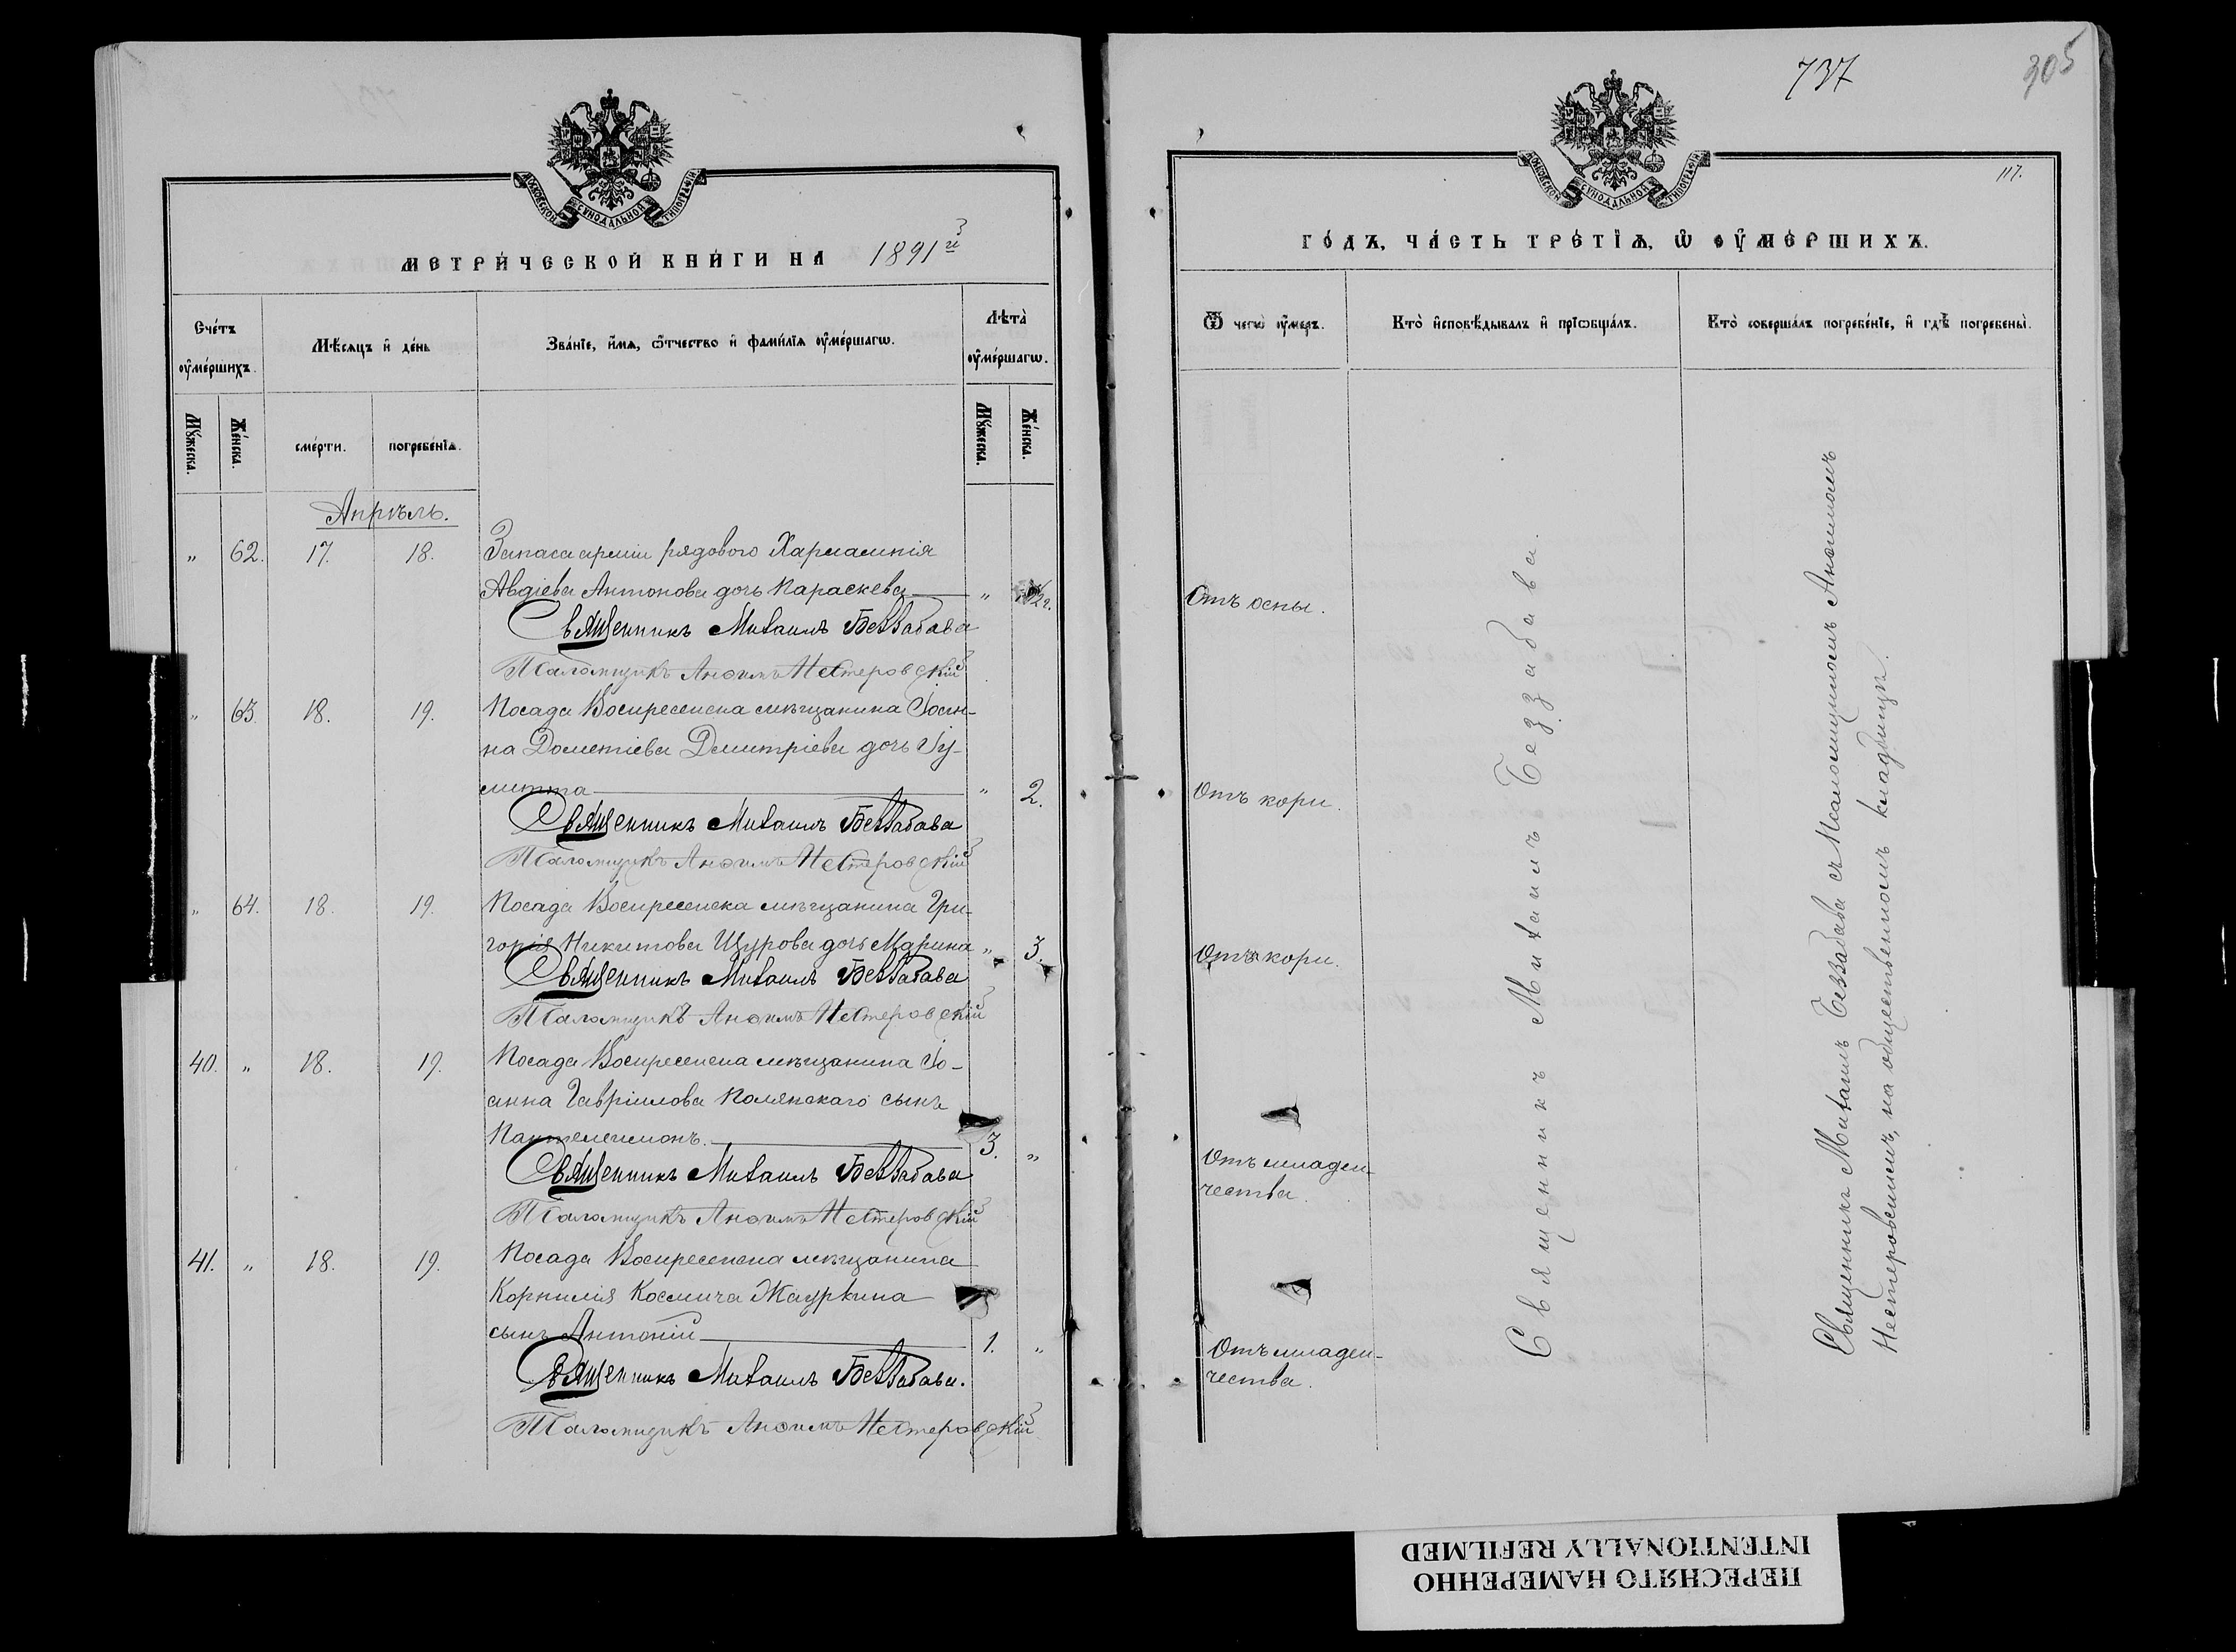 МОСКОВСКОЙ СѴНОДАЛЬНОЙ ТИПОГРАФІИ
МЕТРИ́ЧЕСКОЙ КНИ́ГИ НА 1891й
Сче́тъ ᲂу҆ме́ршихъ.
Мѣ́сяцъ и҆ де́нь
Зва́нїе, и҆́мѧ, ѻ҆́тчество и҆ фами́лїѧ ᲂу҆ме́ршагѡ.
Лѣта̀ ᲂу҆ме́ршагѡ.
Мꙋ́жеска.
Же́нска.
сме́рти.
погребе́нїѧ.
Мꙋ́жеска.
Же́нска.
Апрѣль.
„ 62. 17. 18. Запаса арміи рядового Харлампія
Авдіева Антонова дочь Параскева „
Священникъ Михаилъ Беззабава
Псаломщикъ Анѳимъ Нестеровскій
„ 63. 18. 19. Посада Воскресенска мѣщанина Іоан-
на Дометіева Дмитріева дочь Іу-
литта „ 2.
Священникъ Михаилъ Беззабава
Псаломщикъ Анѳимъ Нестеровскій
„ 64. 18. 19. Посада Воскресенска мѣщанина Гри-
горія Никитова Щурова дочь Марина „ 3.
Священникъ Михаилъ Беззабава
Псаломщикъ Анѳимъ Нестеровскій
40. „ 18. 19. Посада Воскресенска мѣщанина Іо-
анна Гавріилова Полянскаго сынъ
Пантелеимонъ. 3. „
Священникъ Михаилъ Беззабава
Псаломщикъ Анѳимъ Нестеровскій
41. „ 18. 19. Посада Воскресенска мѣщанина
Корнилія Космича Жауркина
сынъ Антоній 1. „
Священникъ Михаилъ Беззабава.
Псаломщикъ Анѳимъ Нестеровскій
737
305
117.
МОСКОВСКОЙ СѴНОДАЛЬНОЙ ТИПОГРАФІИ
ГО́ДЪ, ЧА́СТЬ ТРЕ́ТЇѦ, Ѡ҆ ОУ҆МЕ́РШИХЪ.
Ѿ чегѡ̀ ᲂу҆́меръ.
Кто̀ и҆сповѣ́дывалъ и҆ прїѡбща́лъ.
Кто̀ соверша́лъ погребе́нїе, и҆ гдѣ̀ погребены̀.
Отъ оспы.
Отъ кори.
Отъ кори.
Отъ младен-
чества.
Отъ младен-
чества.
Священникъ Михаилъ Беззабава.
Священникъ Михаилъ Беззабава съ Псаломщикомъ Анѳимомъ
Нестеровскимъ, на общественномъ кладбищѣ.
ПЕРЕСНЯТО НАМЕРЕННО
INTENTIONALLY REFILMED